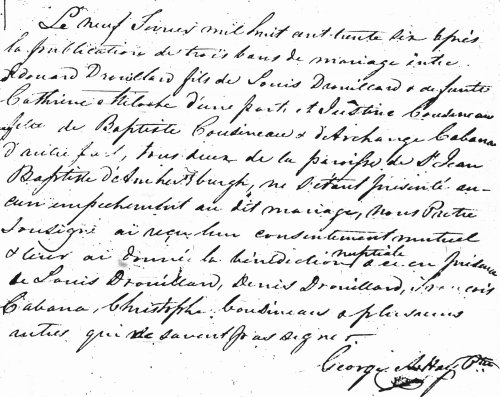 Le neuf Fevrier mil huit cent trente six après
la publication de trois bans de mariage entre
Edouard Drouillard fils de Louis Drouillard & de feûe
Cathrine Meloche d'une part et Justine Cousineau
fille de Baptiste Cousineau & d'Archange Cabana
d'autre part, tous deux de la paroisse de St Jean
Baptiste d'Amherstburgh, ne s'étant présenté au-
cun empechement au dit mariage, nous Prêtre
Sousigné ai reçu leur consentement mutuel
& leur ai donnée la bénédiction nuptiale & ce en présence
de Louis Drouillard, Denis Drouillard, François
Cabana, Christophe Cousineau & plusieurs
autres qui ne savent pas signer.
George A. Hay Ptre